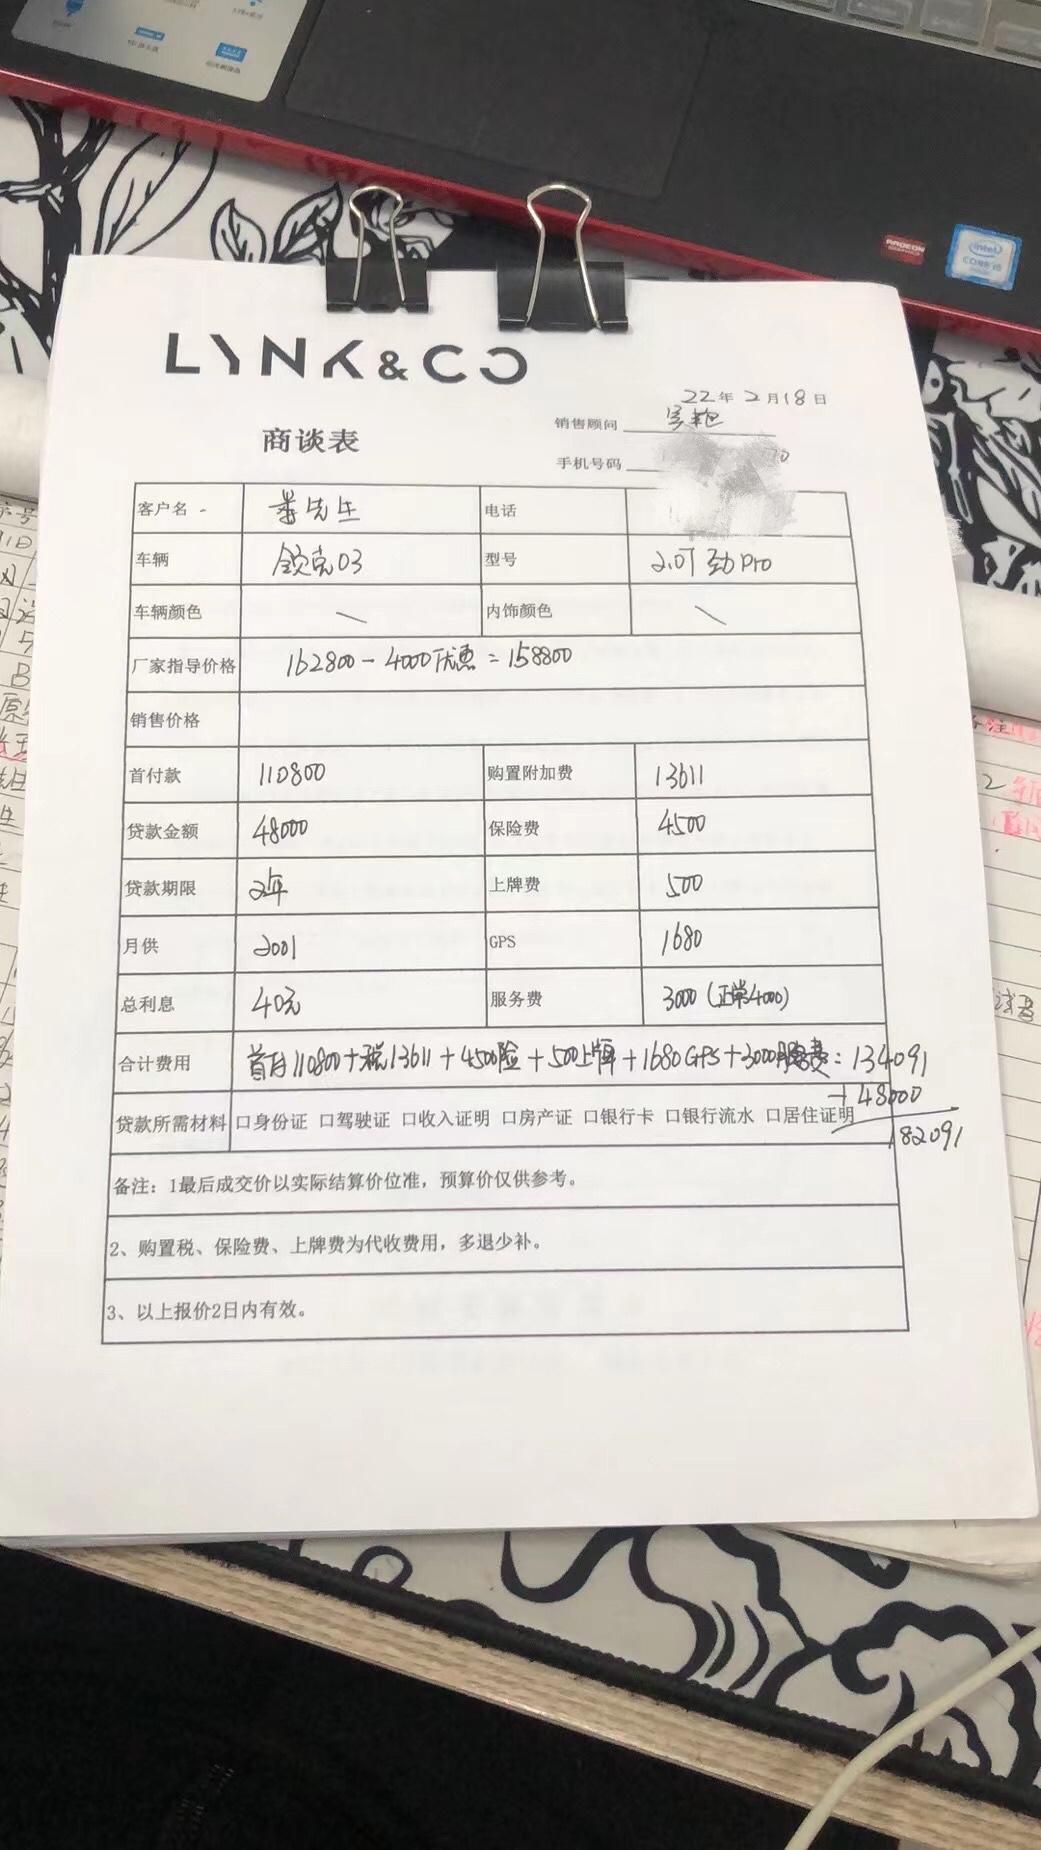 LYNK&CO
22年2月18日
销售顾问
商谈表
手机号码
客户名 先生 电话
车辆 领克03 型号 2.0T 劲Pro
车辆颜色 \ 内饰颜色 \
厂家指导价格 162800-4000优惠=158800
销售价格
首付款 110800 购置附加费 13611
贷款金额 48000 保险费 4500
贷款期限 2年 上牌费 500
月供 2001 GPS 1680
总利息 40元 服务费 3000(正常4000)
合计费用 首付110800+税13611+4500险+500上牌+1680GPS+3000服务费=134091
+48000
贷款所需材料 口身份证 口驾驶证 口收入证明 口房产证 口银行卡 口银行流水 口居住证明
182091
备注：1最后成交价以实际结算价位准，预算价仅供参考。
2、购置税、保险费、上牌费为代收费用，多退少补。
3、以上报价2日内有效。
intel
CORE i5
RADEON
GRAPHICS